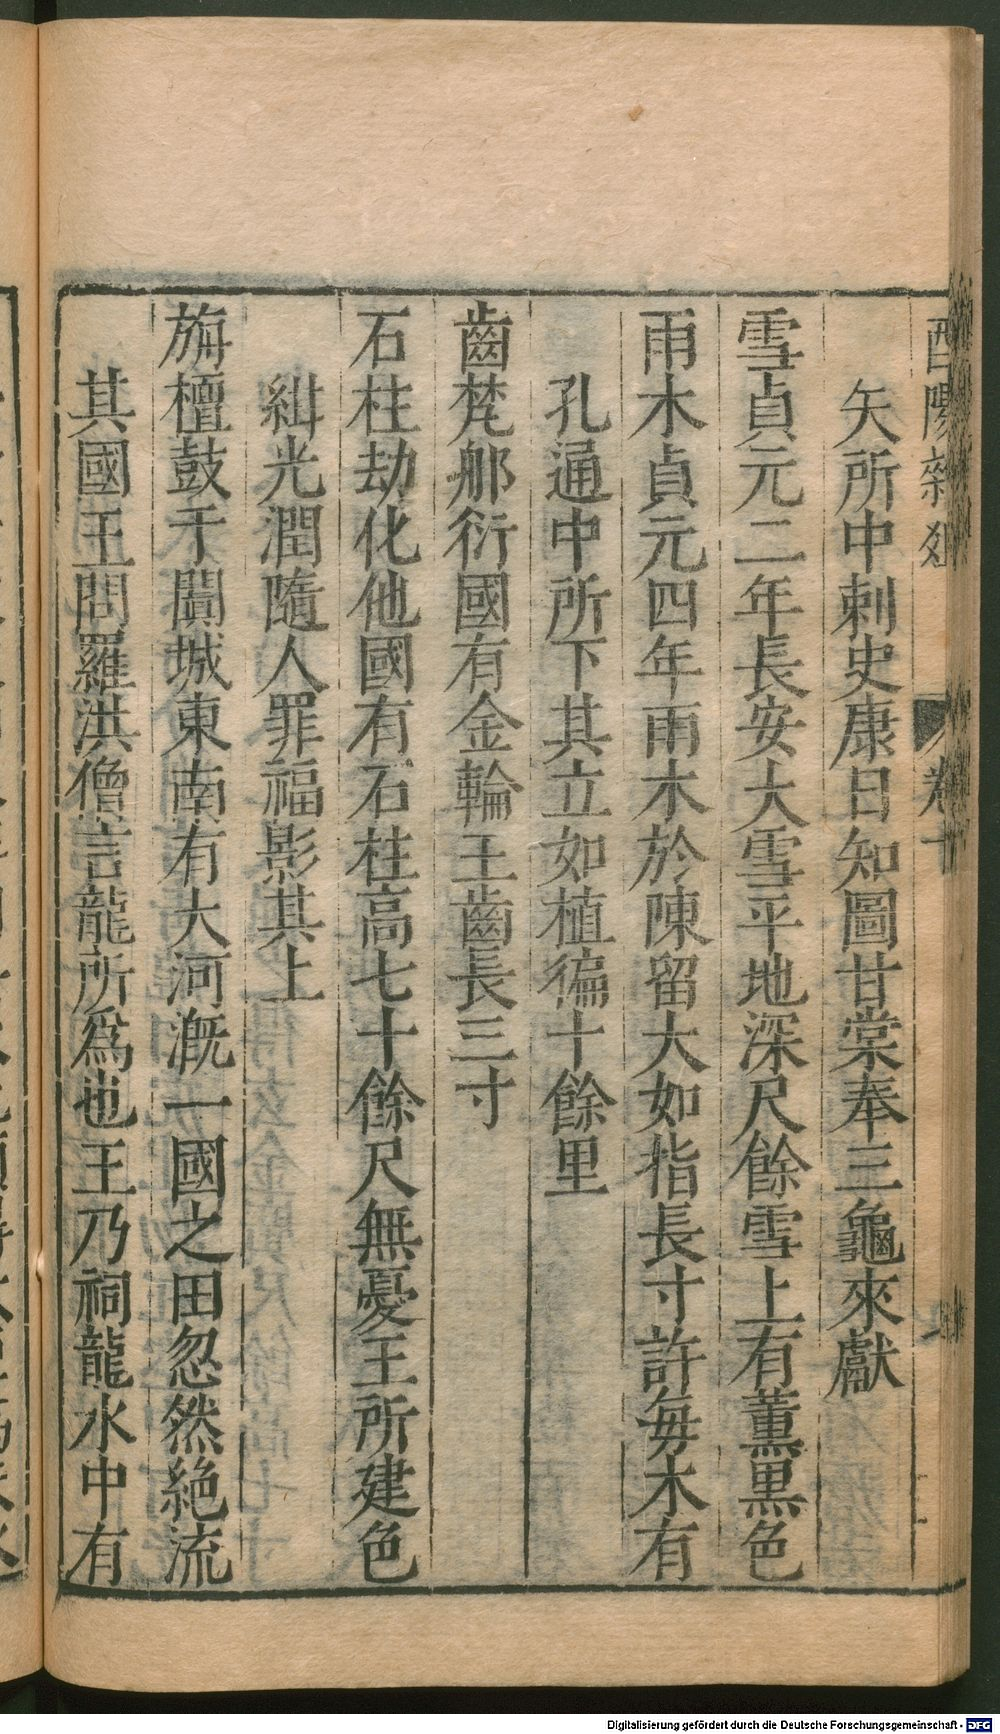 酉陽雜俎 卷十
矢所中刺史康日知圖甘棠奉三龜來獻
雪貞元二年長安大雪平地深尺餘雪上有薰黒色
雨木貞元四年雨木於陳留大如指長寸許每木有
孔通中所下其立如植徧十餘里
齒梵那衍國有金輪王齒長三寸
石柱劫化他國有石柱高七十餘尺無憂王所建色
紺光潤隨人罪福影其上
旃檀鼓于闐城東南有大河漑一國之田忽然絶流
其國王問羅洪僧言龍所爲也王乃祠龍水中有
Digitalisierung gefördert durch die Deutsche Forschungsgemeinschaft - DFG